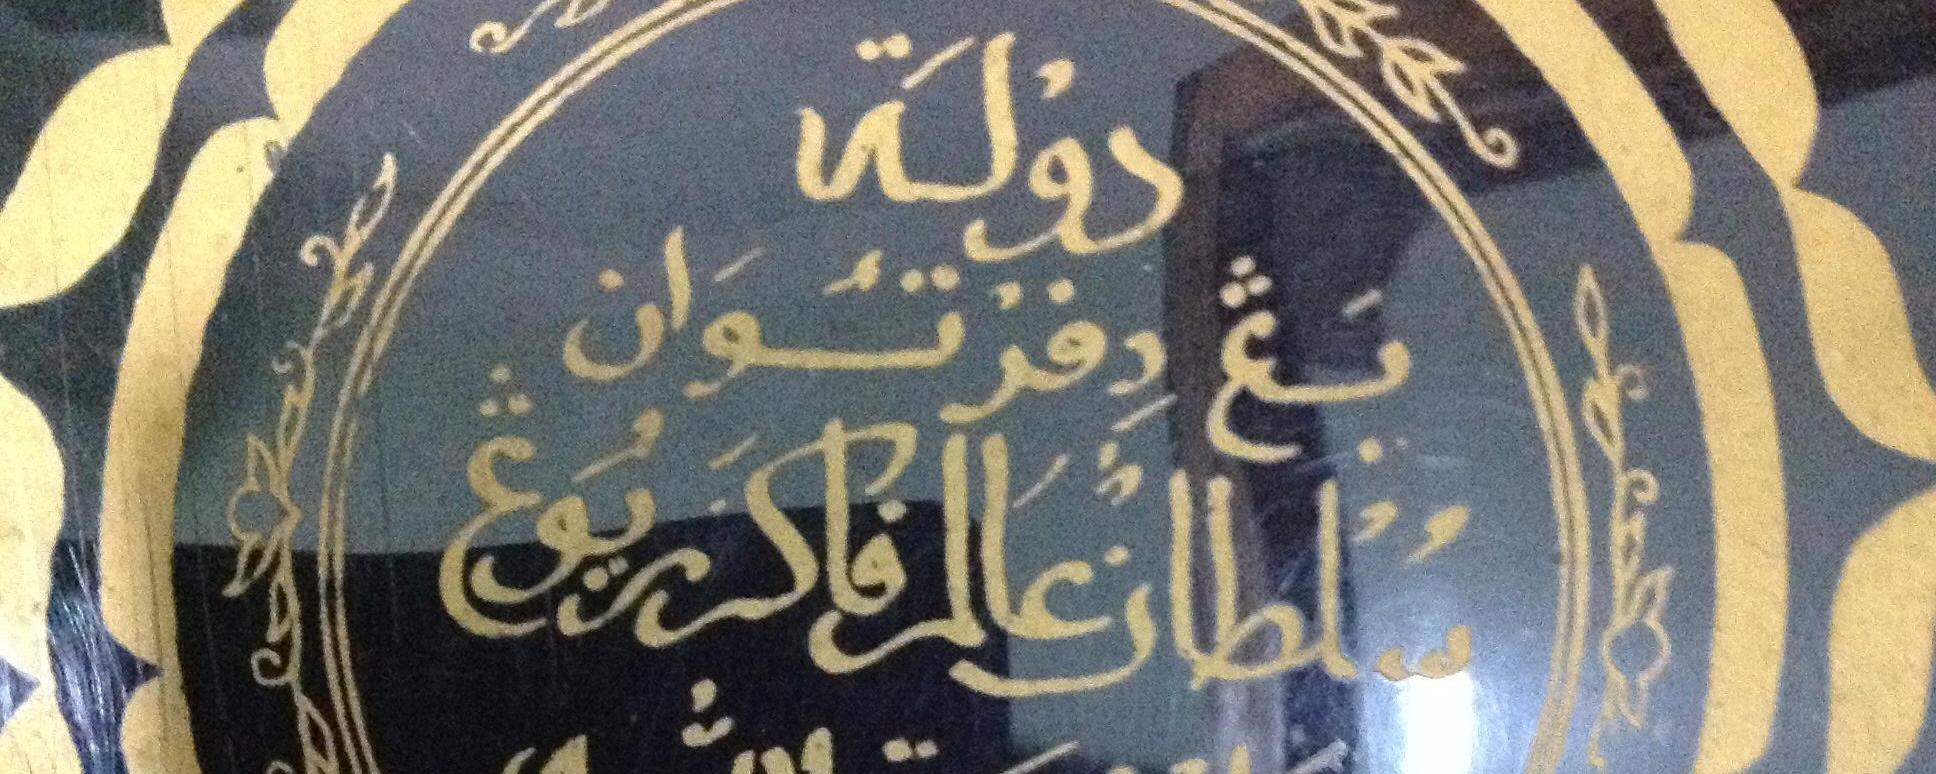 دوْلَة
يَڠ دفرْتُوَان
سُلْطَان عَالَم فاكَريُوڠ